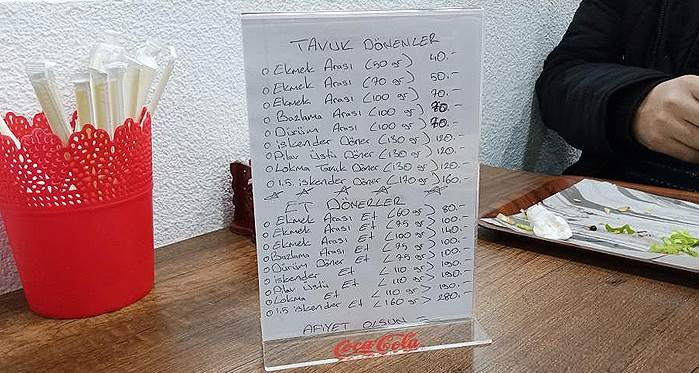 TAVUK DÖNERLER
o Ekmek Arası (50 gr) 40.-
o Ekmek Arası (70 gr) 50.-
o Ekmek Arası (100 gr) 70.-
o Bazlama Arası (100 gr) 70.-
o Dürüm Arası (100 gr) 70.-
o iskender Döner (130 gr) 120.-
o Pilav Üstü Döner (130 gr) 120.-
o Lokma Tavuk Döner (130 gr) 120.-
o 1.5 iskender Döner (170 gr) 160.-
ET DÖNERLER
o Ekmek Arası Et (60 gr) 80.-
o Ekmek Arası Et (75 gr) 100.-
o Ekmek Arası Et (100 gr) 140.-
o Bazlama Arası Et (75 gr) 100.-
o Dürüm Döner Et (75 gr) 100.-
o iskender Et (110 gr) 190.-
o Pilav Üstü Et (110 gr) 190.-
o Lokma Et (110 gr) 190.-
o 1.5 iskender Et (160 gr) 280.-
AFİYET OLSUN
Coca-Cola